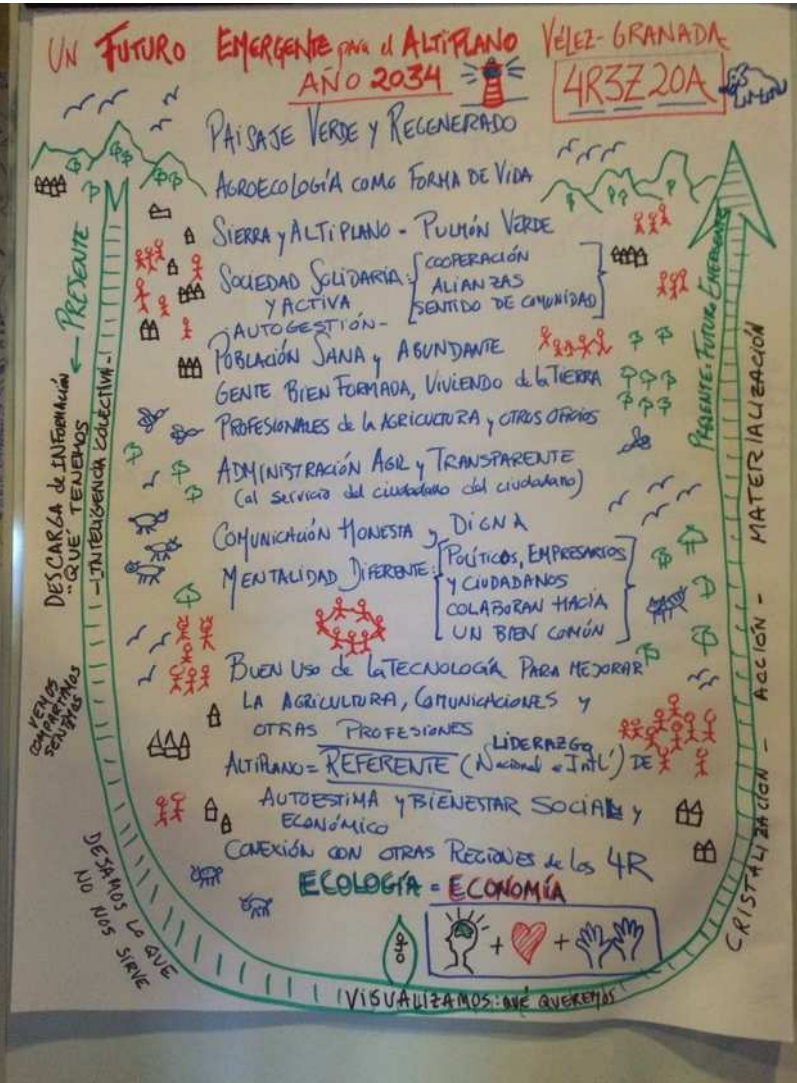 UN FUTURO EMERGENTE para el ALTIPLANO VÉLEZ-GRANADA
AÑO 2034
4R3Z20A
PAISAJE VERDE Y REGENERADO
AGROECOLOGÍA COMO FORMA DE VIDA
SIERRA y ALTIPLANO - PULMÓN VERDE
SOCIEDAD SOLIDARIA: COOPERACIÓN
Y ACTIVA ALIANZAS
SENTIDO DE COMUNIDAD
¡AUTOGESTIÓN-
POBLACIÓN SANA y ABUNDANTE
GENTE BIEN FORMADA, VIVIENDO de la TIERRA
PROFESIONALES de la AGRICULTURA y OTROS OFICIOS
ADMINISTRACIÓN AGIL y TRANSPARENTE
(al servicio del ciudadano del ciudadano)
COMUNICACIÓN HONESTA y DIGNA
MENTALIDAD DIFERENTE: POLÍTICOS, EMPRESARIOS
Y CIUDADANOS
COLABORAN HACIA
UN BIEN COMÚN
BUEN USO de la TECNOLOGÍA PARA MEJORAR
LA AGRICULTURA, COMUNICACIONES y
OTRAS PROFESIONES
LIDERAZGO
ALTIPLANO = REFERENTE (Nacional e Intl') DE
AUTOESTIMA y BIENESTAR SOCIAL y
ECONÓMICO
CONEXIÓN CON OTRAS REGIONES de los 4R
ECOLOGÍA = ECONOMÍA
← PRESENTE
DESCARGA de INFORMACIÓN
"QUÉ" TENEMOS
-INTELIGENCIA COLECTIVA-
VEMOS
COMPARTIMOS
SENTIMOS
DEJAMOS LO QUE
NO NOS SIRVE
VISUALIZAMOS: QUÉ QUEREMOS
CRISTALIZACIÓN - ACCIÓN - MATERIALIZACIÓN
PRESENTE: FUTURO EMERGENTE